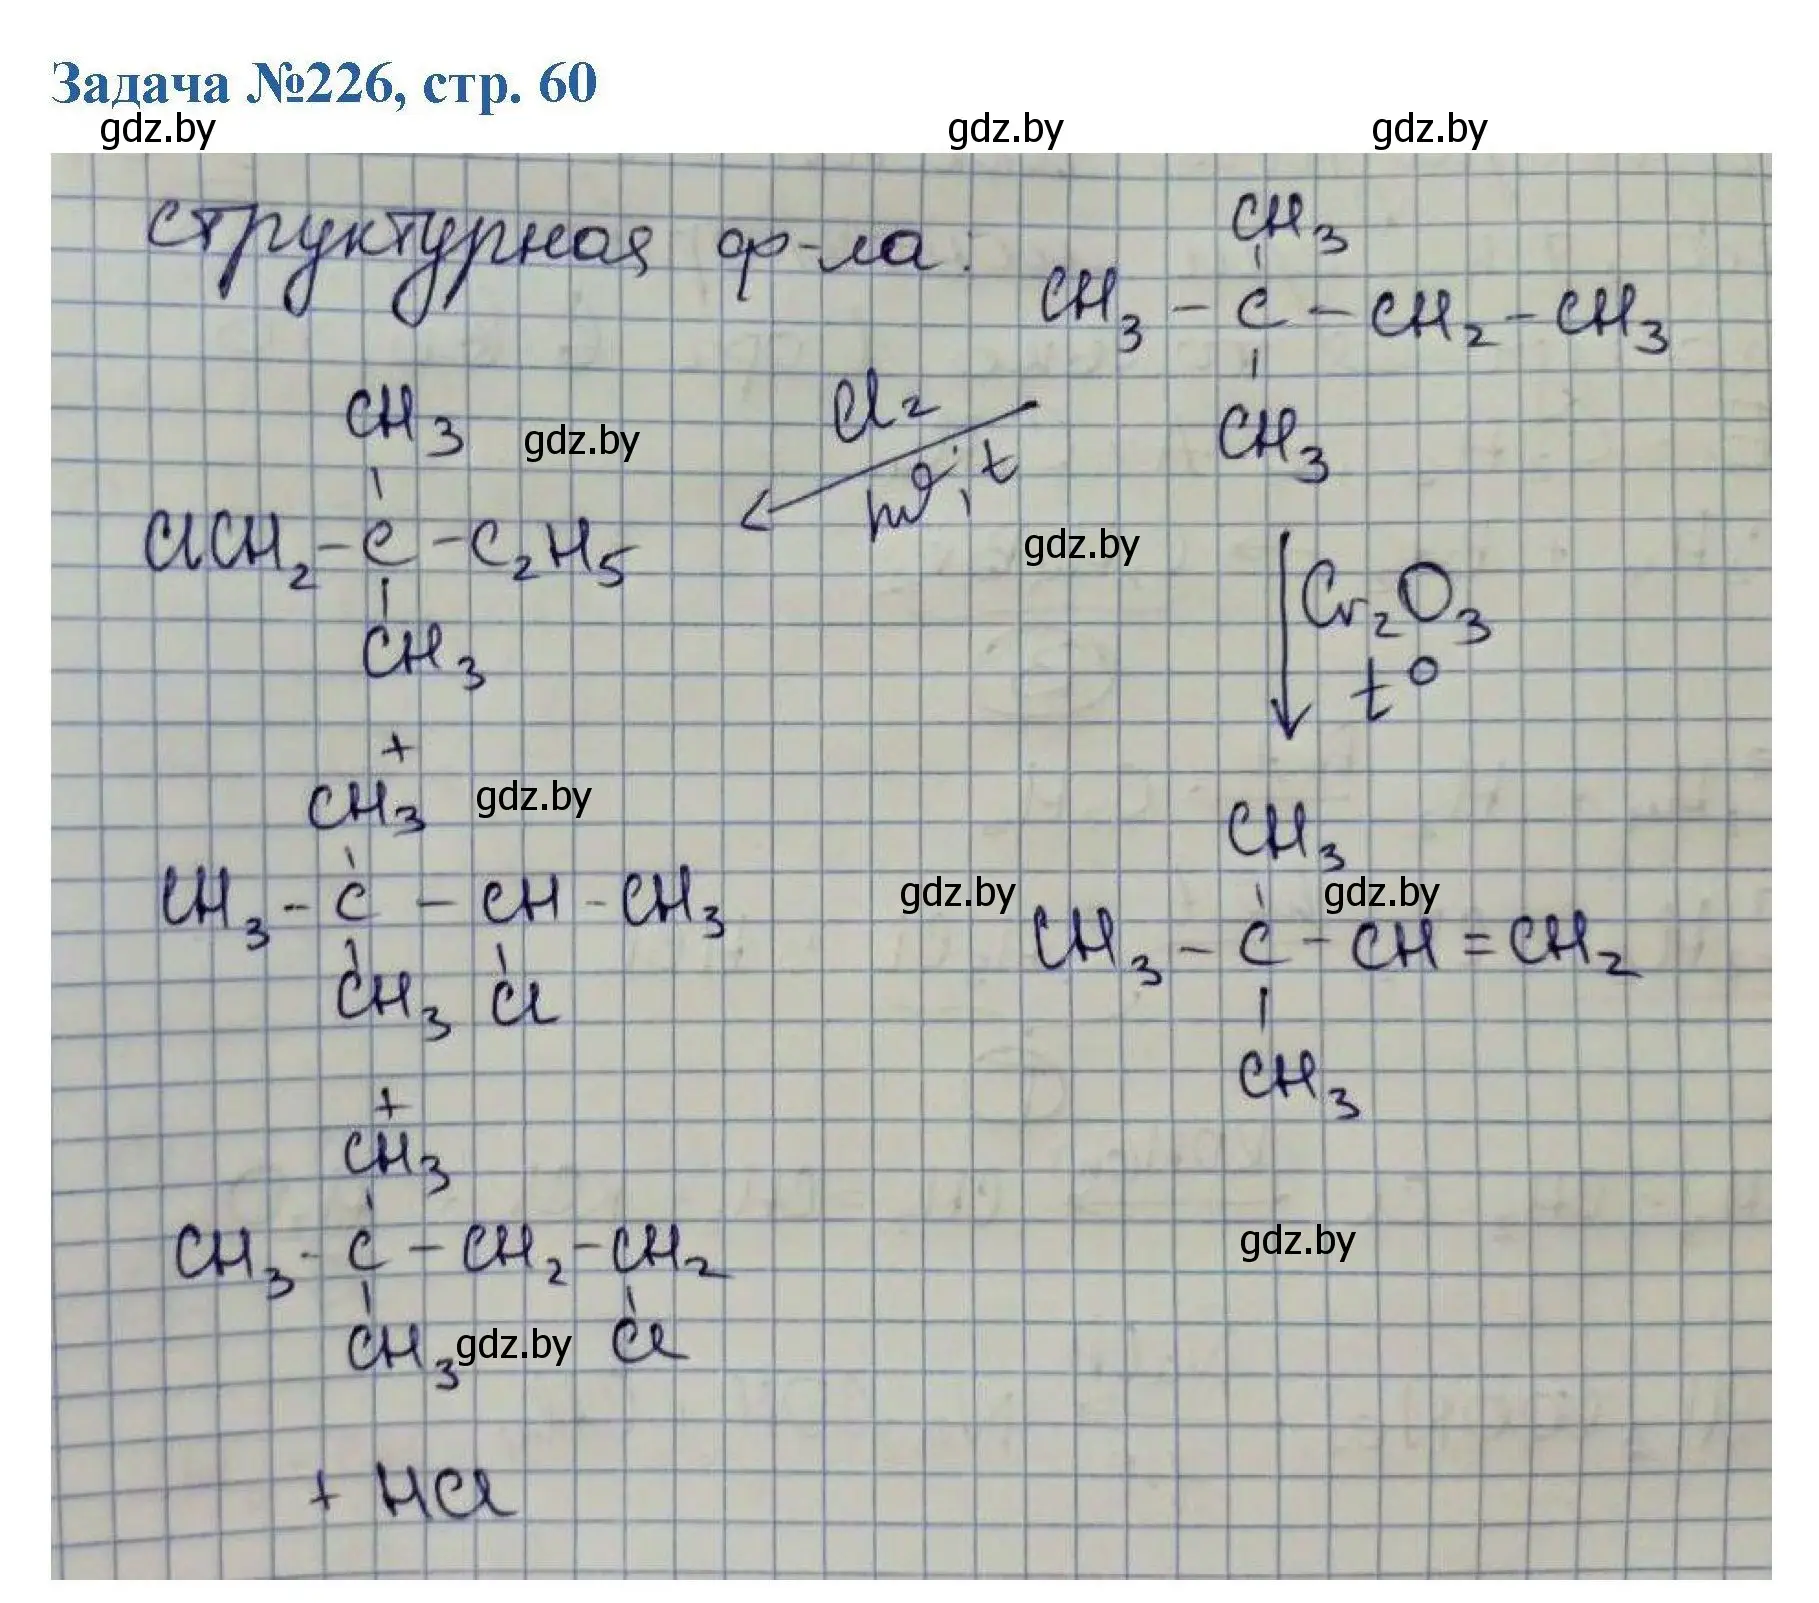 Задача №226, стр. 60
gdz.by gdz.by gdz.by
структурная ф-ла:
CH3
CH3 - C - CH2 - CH3
CH3
Cl2
hν, t
CH3
gdz.by
ClCH2 - C - C2H5
CH3
gdz.by
Cr2O3
t°
+
CH3
gdz.by
CH3 - C - CH - CH3
CH3 Cl
CH3
gdz.by gdz.by
CH3 - C - CH = CH2
CH3
+
CH3
CH3 - C - CH2 - CH2
CH3 Cl
gdz.by
gdz.by
+ HCl